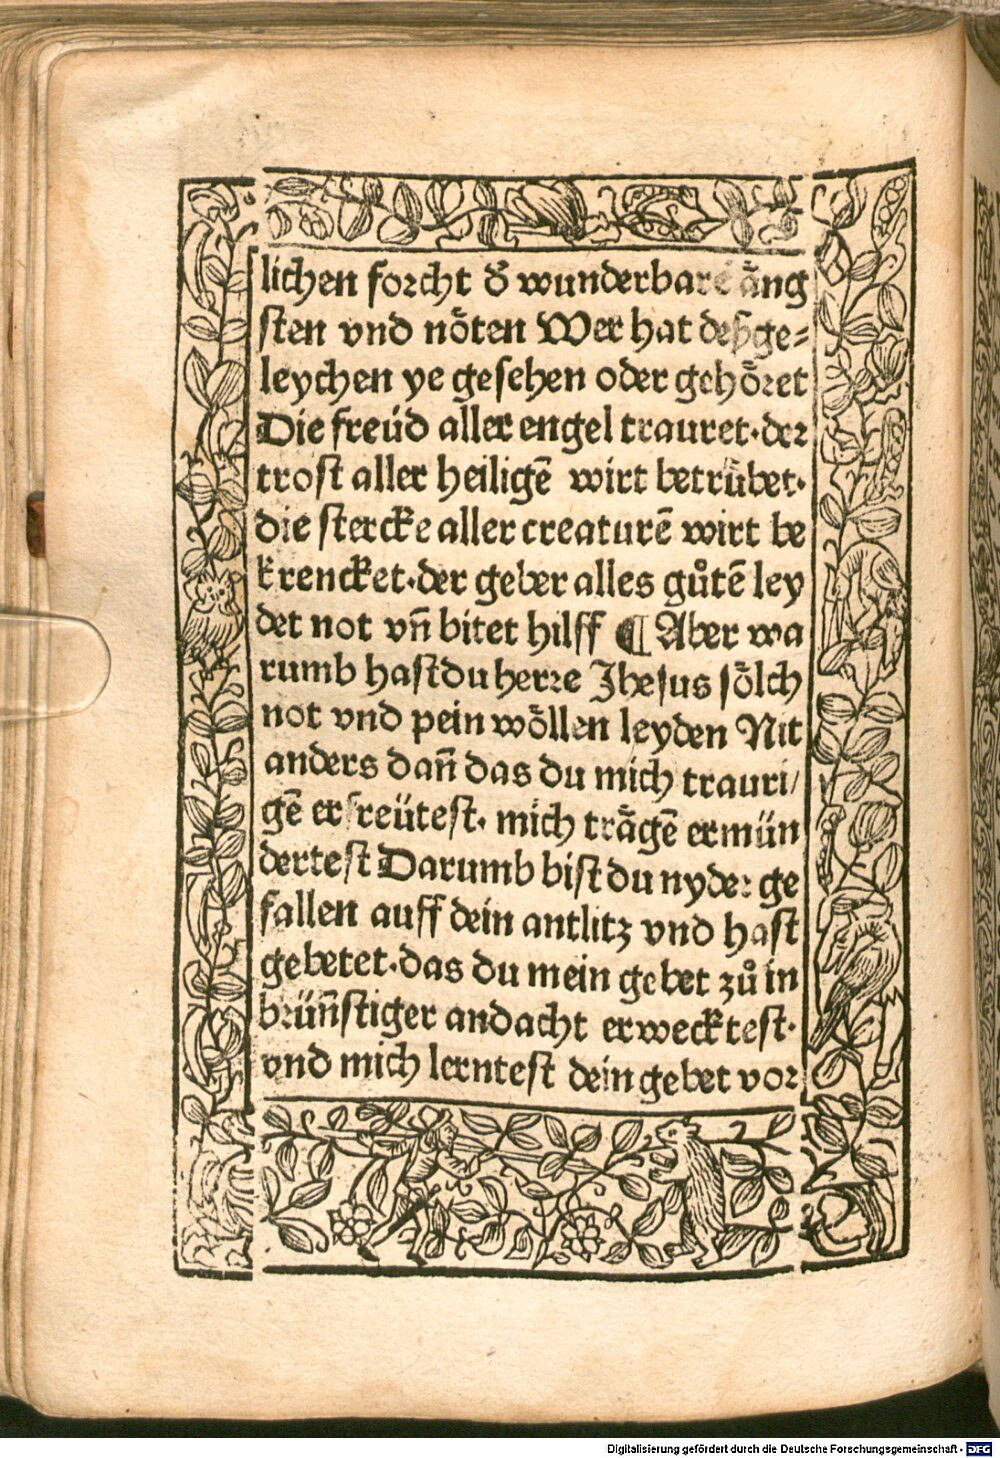 lichen forcht d̕ wunderbarē ång
sten vnd nöten Wer hat deßge-
leychen ye gesehen oder gehöret
Die freüd aller engel trauret·der
trost aller heiligē wirt betrübet·
die stercke aller creaturē wirt be
krencket·der geber alles gůtē ley
det not vn̄ bitet hilff ¶ Aber wa
rumb hastdu herre Jhesus sölch
not vnd pein wöllen leyden Nit
anders dan̄ das du mich trauri/
gē erfreütest· mich trägē ermün
dertest Darumb bist du nyder ge
fallen auff dein antlitz vnd hast
gebetet·das du mein gebet zů in
brün̄stiger andacht erwecktest·
vnd mich lerntest dein gebet vor
Digitalisierung gefördert durch die Deutsche Forschungsgemeinschaft - DFG